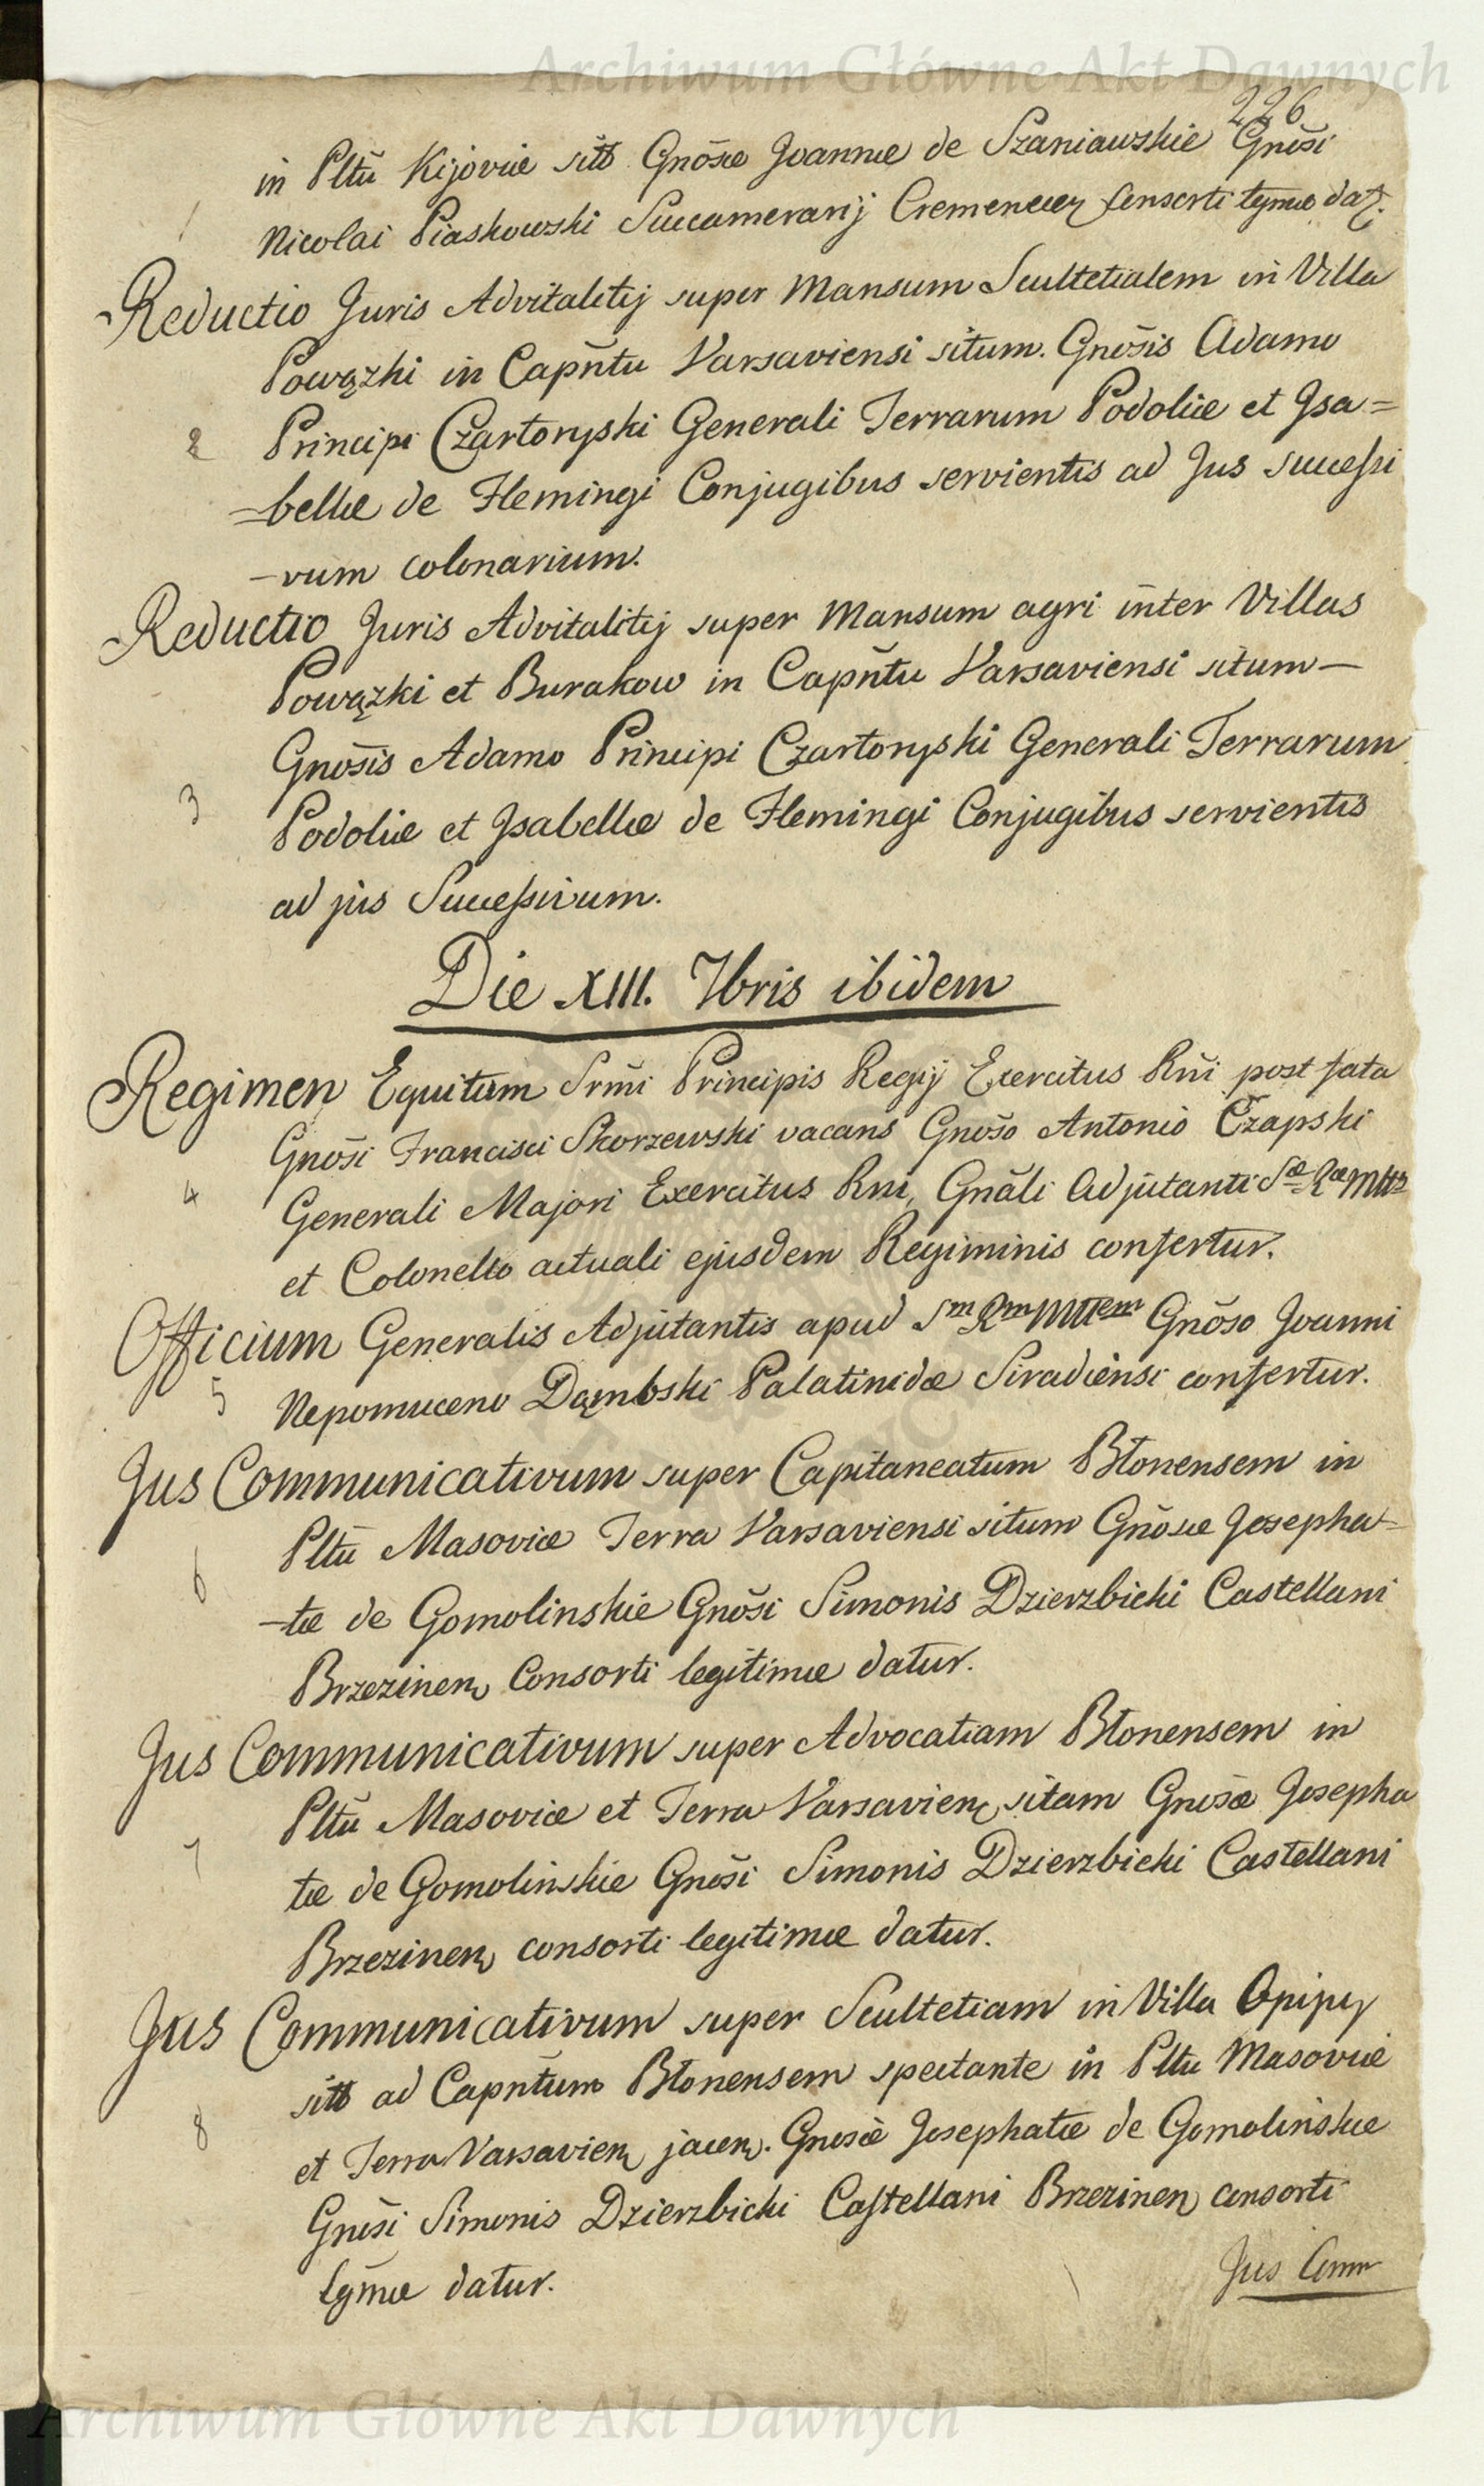 Archiwum Główne Akt Dawnych
226
in Pltũ Kijoviæ sitô Gnõsæ Joannæ de Szaniawskie Gnõsi
1 Nicolai Piaskowski Succamerarij Cremenecen Consorti lgmæ dat.
Reductio Juris Advitalitij super Mansum Scultetialem in Villa
Powązki in Capñtu Varsaviensi situm. Gnõsis Adamo
2 Principi Czartoryski Generali Terrarum Podoliæ et Jsa=
=bellæ de Flemingi Conjugibus servientis ad Jus Successi
-vum colonarium.
Reductio Juris Advitalitij super Mansum agri inter Villas
Powązki et Burakow in Capñtu Varsaviensi situm—
Gnõsis Adamo Principi Czartoryski Generali Terrarum
3 Podoliæ et Jsabellæ de Flemingi Conjugibus servientis
ad jus Successivum.
Die XIII. 7bris ibidem
Regimen Equitum Srm̃i Principis Regij Exercitus Rñi post fata
Gnõsi Francisci Skorzewski vacans Gnõso Antonio Czapski
4 Generali Majori Exercitus Rni, Gnãli Adjutanti Sæ Ræ Mttis
et Colonello actuali ejusdem Regiminis confertur.
Officium Generalis Adjutantis apud Sm Rm Mttem Gnõso Joanni
5 Nepomuceno Dąmbski Palatinidæ Siradiensi confertur.
Jus Communicativum super Capitaneatum Błonensem in
Pltũ Masoviæ Terra Varsaviensi situm Gnõsæ Josepha=
6 -tæ de Gomolinskie Gnõsi Simonis Dzierzbicki Castellani
Brzezinen Consorti legitimæ datur.
Jus Communicativum super Advocatiam Błonensem in
Pltũ Masoviæ et Terra Varsavien sitam Gnosæ Josepha
7 tæ de Gomolinskie Gnõsi Simonis Dzierzbicki Castellani
Brzezinen consorti legitimæ datur.
Jus Communicativum super Scultetiam in Villa Opipy
sitô ad Capñtum Błonensem spectante in Pltu Masoviæ
8 et Terra Varsavien jacen. Gnosæ Josephatæ de Gomolinskie
Gnõsi Simonis Dzierzbicki Castellani Brzezinen consorti
lgm̃æ datur.
Jus Comm
Archiwum Główne Akt Dawnych